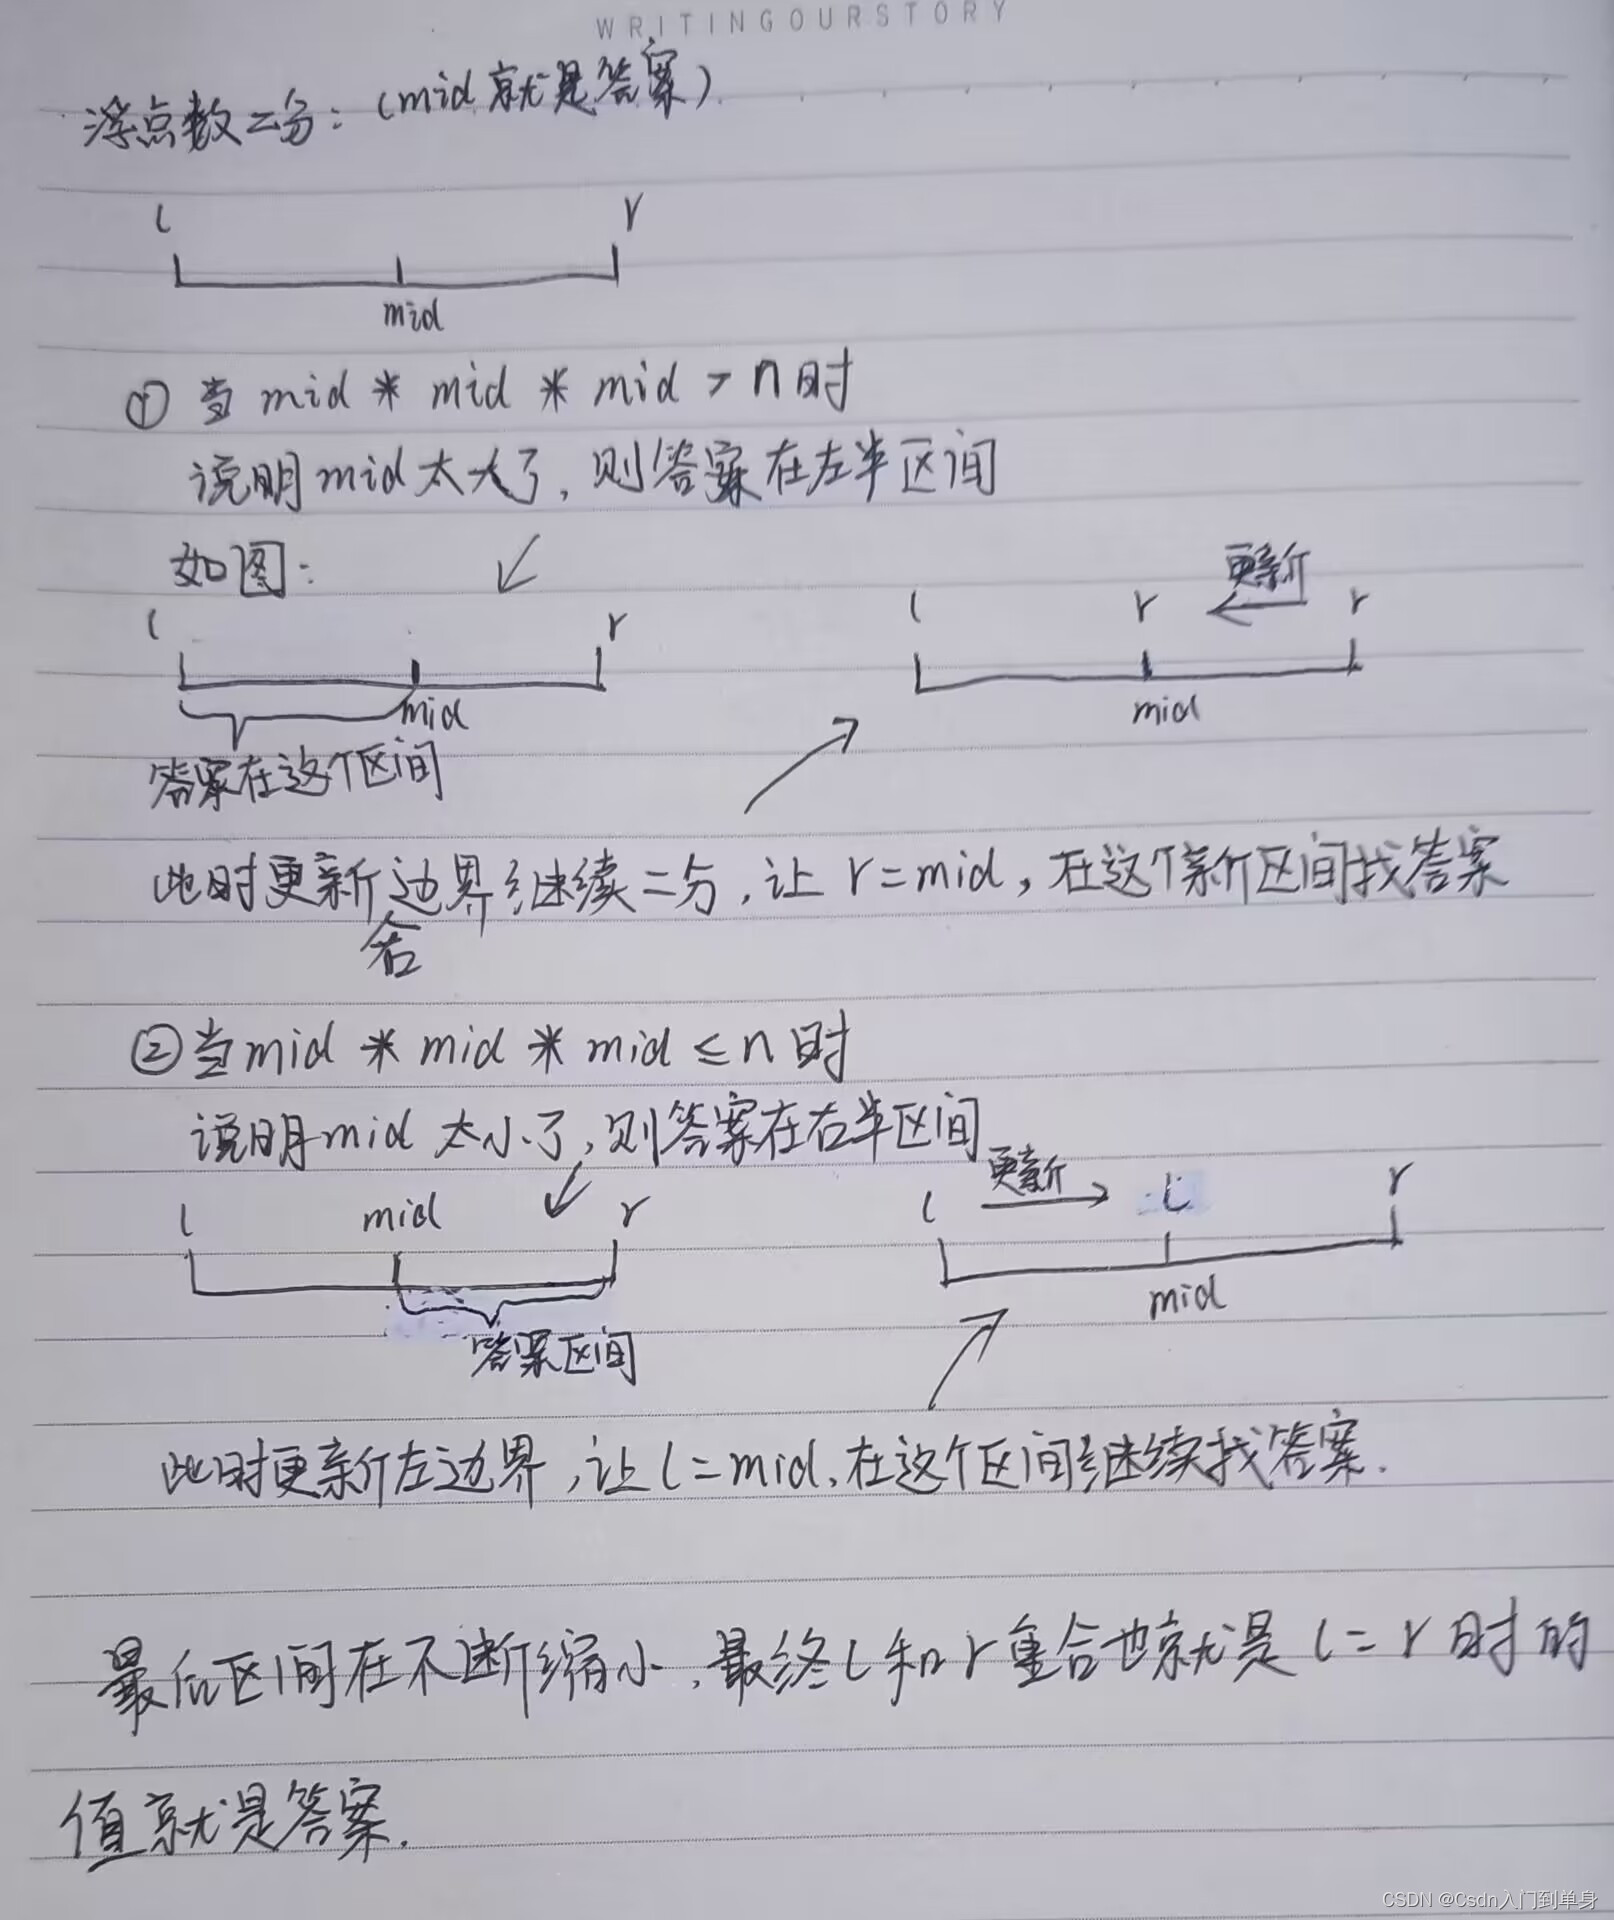 WRITINGOURSTORY
浮点数二分：（mid就是答案）
l r
mid
① 当 mid * mid * mid > n 时
说明mid太大了，则答案在左半区间
如图：
更新
l r
l r r
mid
mid
答案在这个区间
此时更新边界继续二分，让 r=mid，在这个新区间找答案
右
②当mid * mid * mid ≤ n 时
说明mid 太小了，则答案在右半区间
更新
l mid r
l l r
mid
答案区间
此时更新左边界，让 l=mid，在这个区间继续找答案.
最后区间在不断缩小，最终l和r重合也就是 l=r 时的
值就是答案.
CSDN @Csdn入门到单身